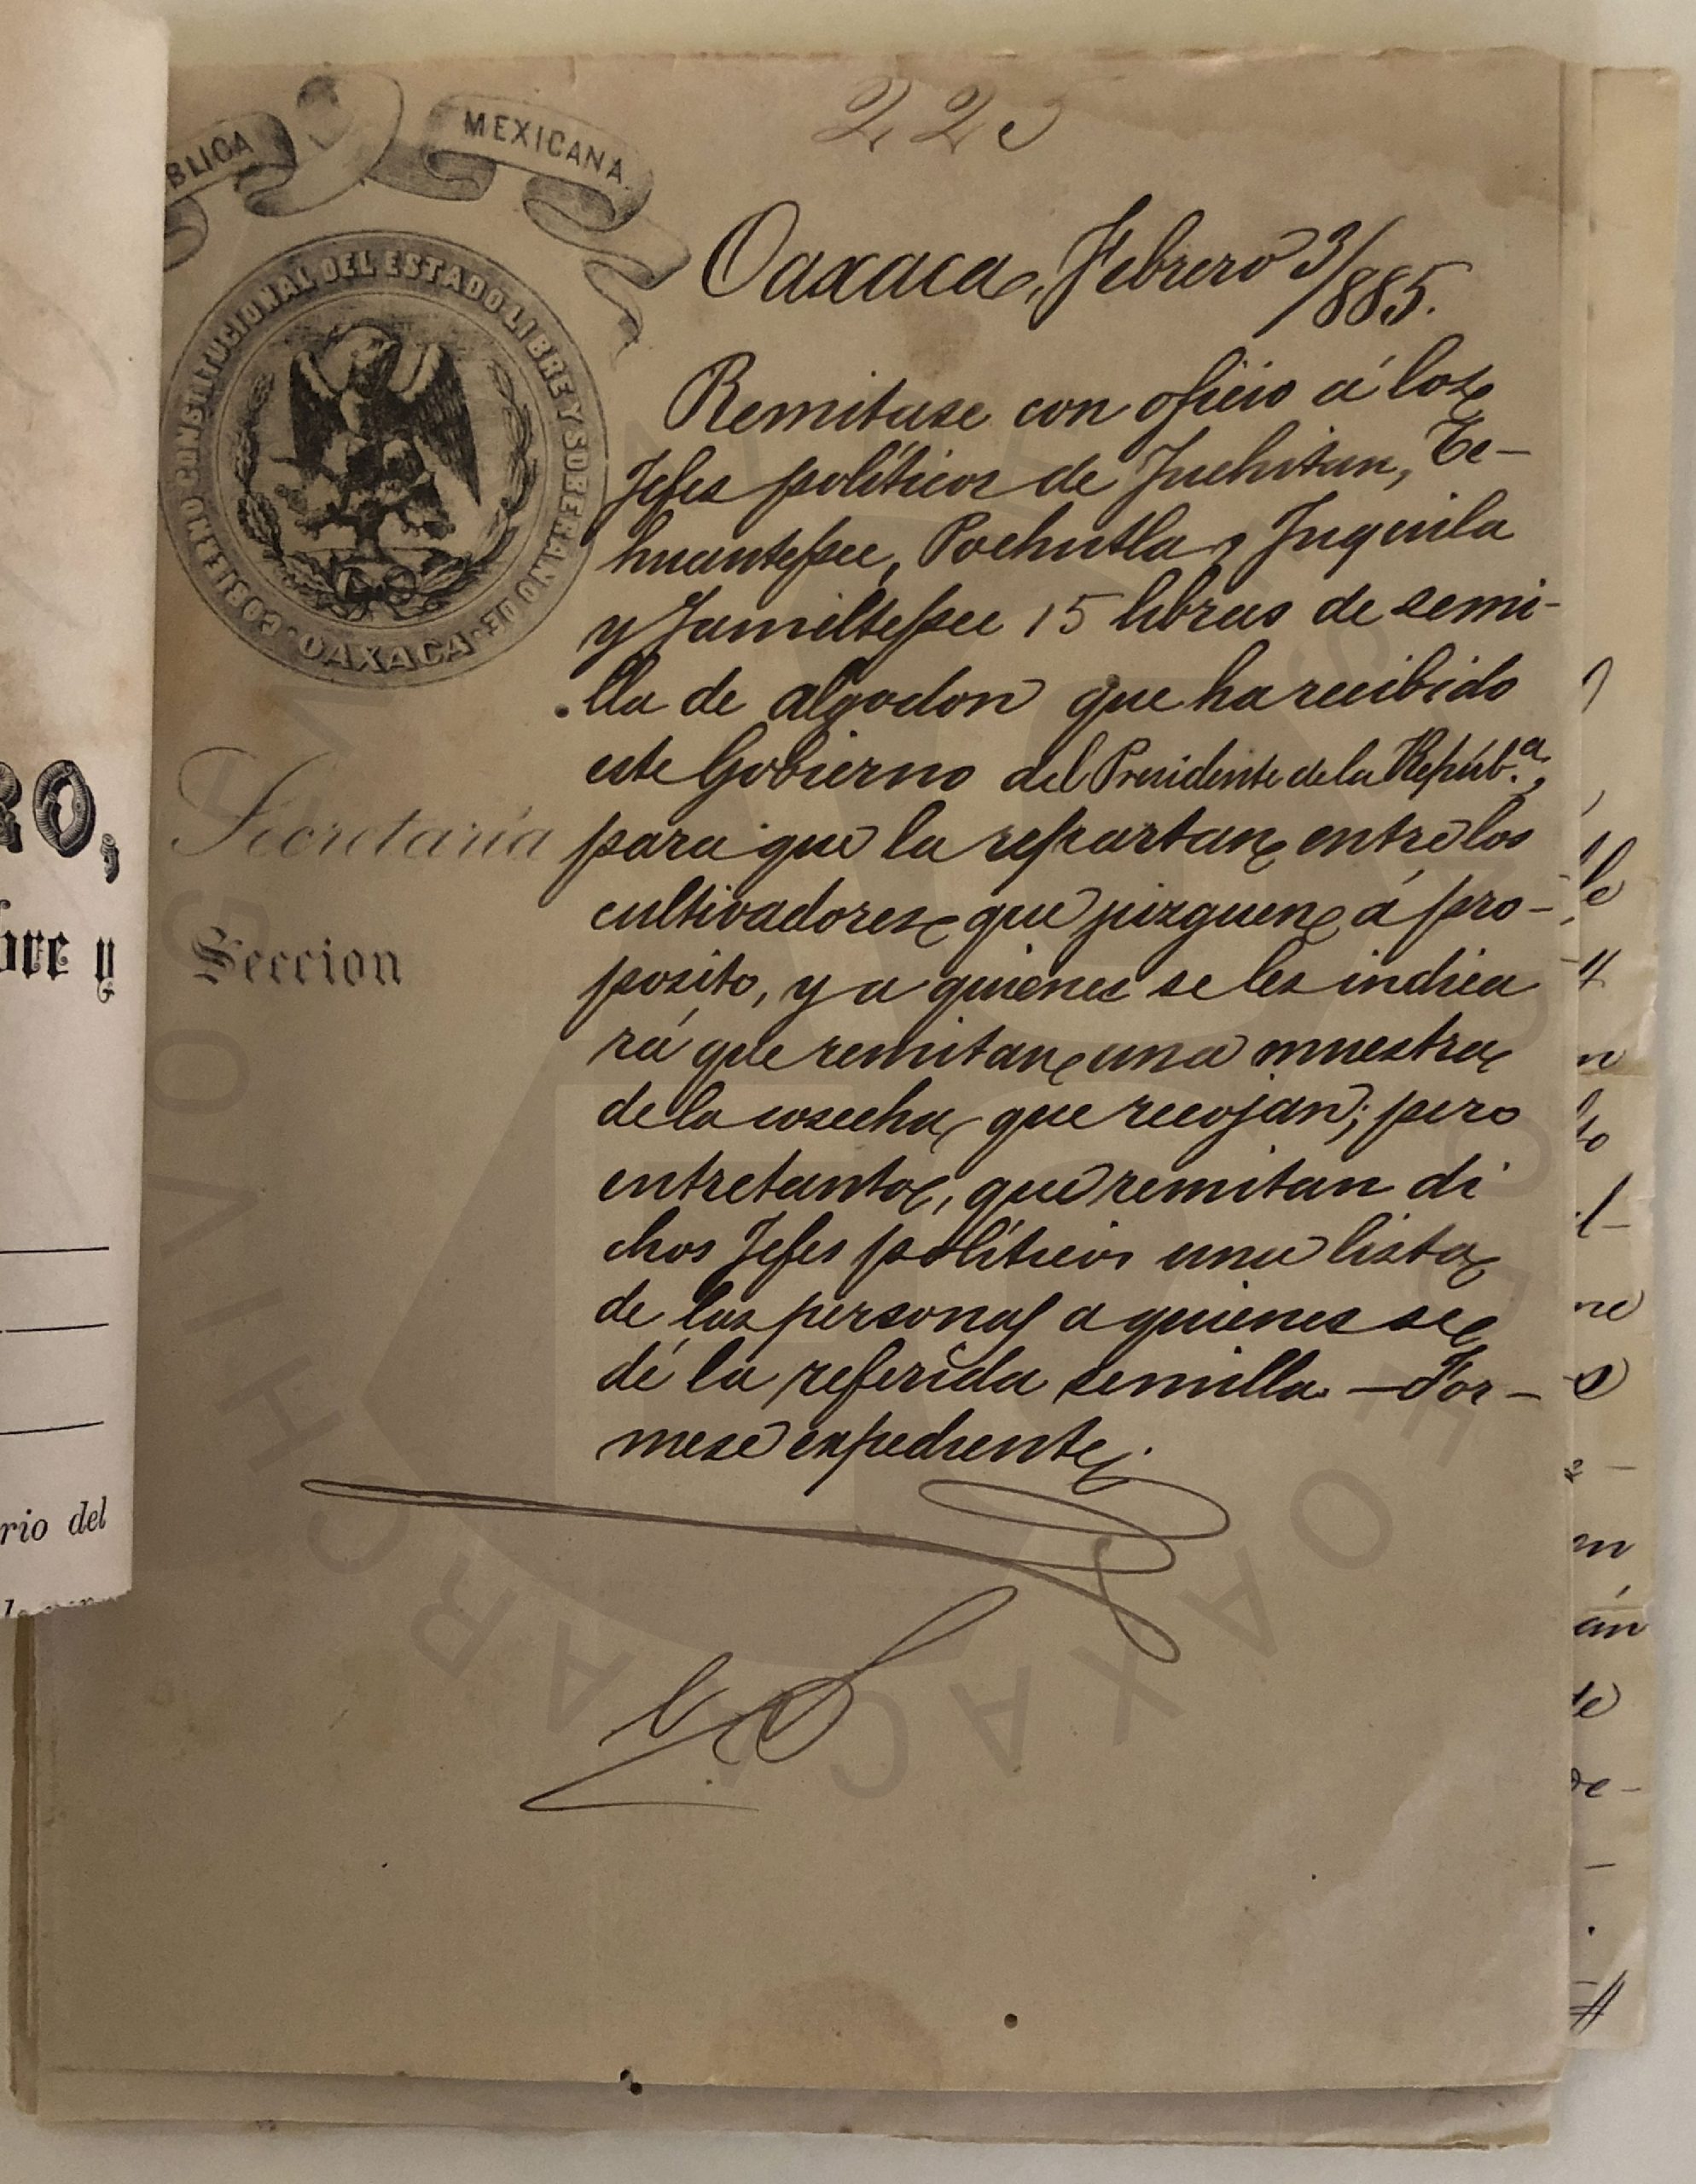 225
BLICA
MEXICANA.
GOBIERNO CONSTITUCIONAL DEL ESTADO LIBRE Y SOBERANO DE
OAXACA
Oaxaca, Febrero 3/885.
Remitase con oficio á los
Jefes políticos de Juchitan, Te-
huantepec, Pochutla, Juquila
y Jamiltepec 15 libras de semi-
lla de algodon que ha recibido
este Gobierno del Presidente de la Repúb.ª,
para que la repartan entre los
cultivadores que juzguen á pro-
posito, y a quienes se les indica
rá que remitan una muestra
de la cosecha que recojan; pero
entretanto, que remitan di
chos Jefes políticos una lista
de las personas a quienes se
dé la referida semilla.—For-
mese expediente.
Secretaría
Seccion
RO,
bre y
rio del
ARCHIVO GENERAL
OAXACA
le
n
to
l-
ne
m
án
te
de-